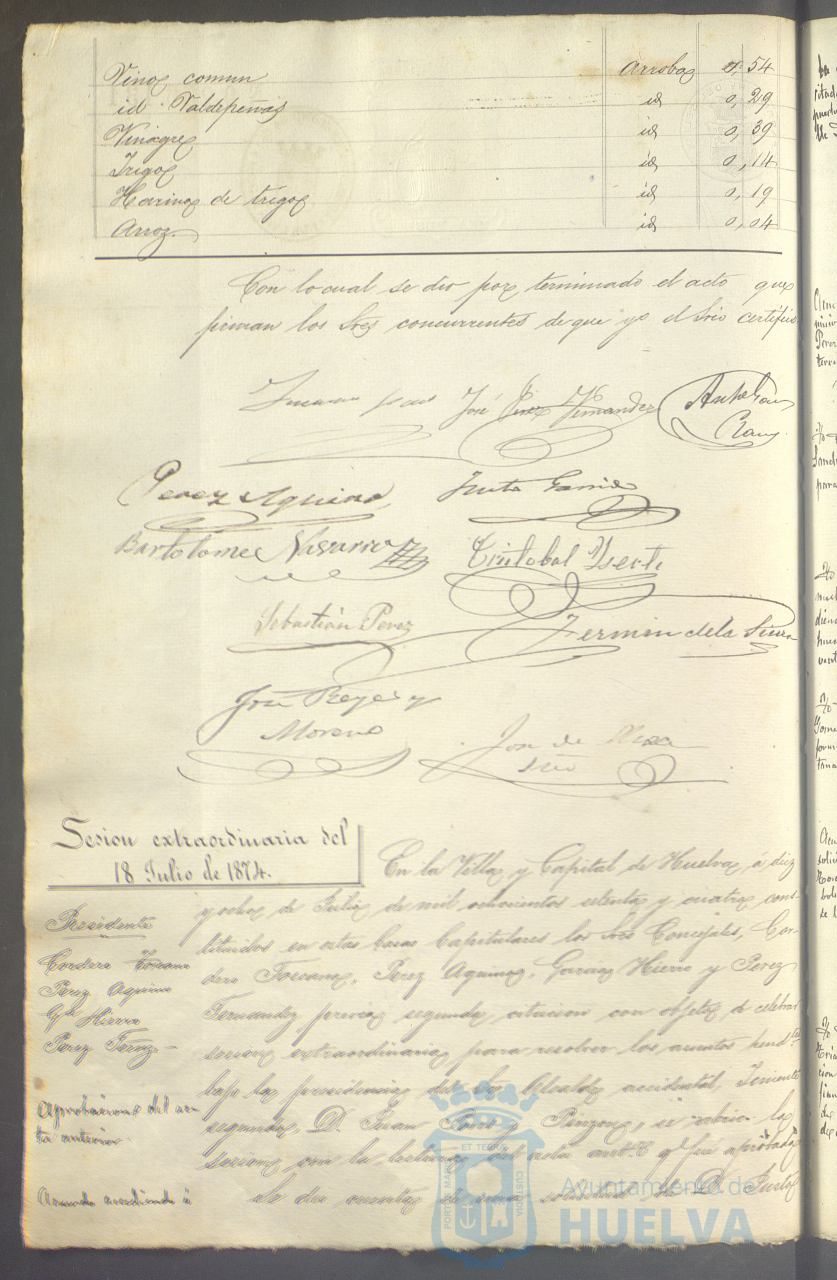 Vino comun arrobas 0,54
id. Valdepeñas id 0,29
Vinagre id 0,39
Trigo id 0,14
Harina de trigo id 0,19
Arroz id 0,04
Con lo cual se dio por terminado el acto que
firman los Sres concurrentes de que yo el Srio certifico
José Perez Fernandez
Perez Aquino
Justo Garrido
Bartolomé Navarro
Cristobal
Sebastián Perez
Fermin dela
José Reyes y
Moreno
José de
Srio
Sesion extraordinaria del
18 Julio de 1874.
En la Villa y Capital de Huelva, á diez
y ocho de Julio de mil ochocientos setenta y cuatro cons
tituidos en estas Casas Capitulares los Sres Concejales, Cor
dero Toscano, Perez Aquino, Garcia Hierro y Perez
Fernandez previa segunda citacion con objeto de celebrar
sesion extraordinaria para resolver los asuntos pendtes
bajo la presidencia del Sr Alcalde accidental, Teniente
segundo, D. Juan y Pinzon, se abrio la
sesion con la lectura del acta antr. qe fué aprobada
Se dio cuenta de una solicitud de D. Justo
Presidente
Cordero Toscano
Perez Aquino
Gª Hierro
Perez Fernz
Aprobacion del ac-
ta anterior
Acuerdo accediendo á
PORTUS MARIS ET TERRAE CUSTODIA
Ayuntamiento de
HUELVA